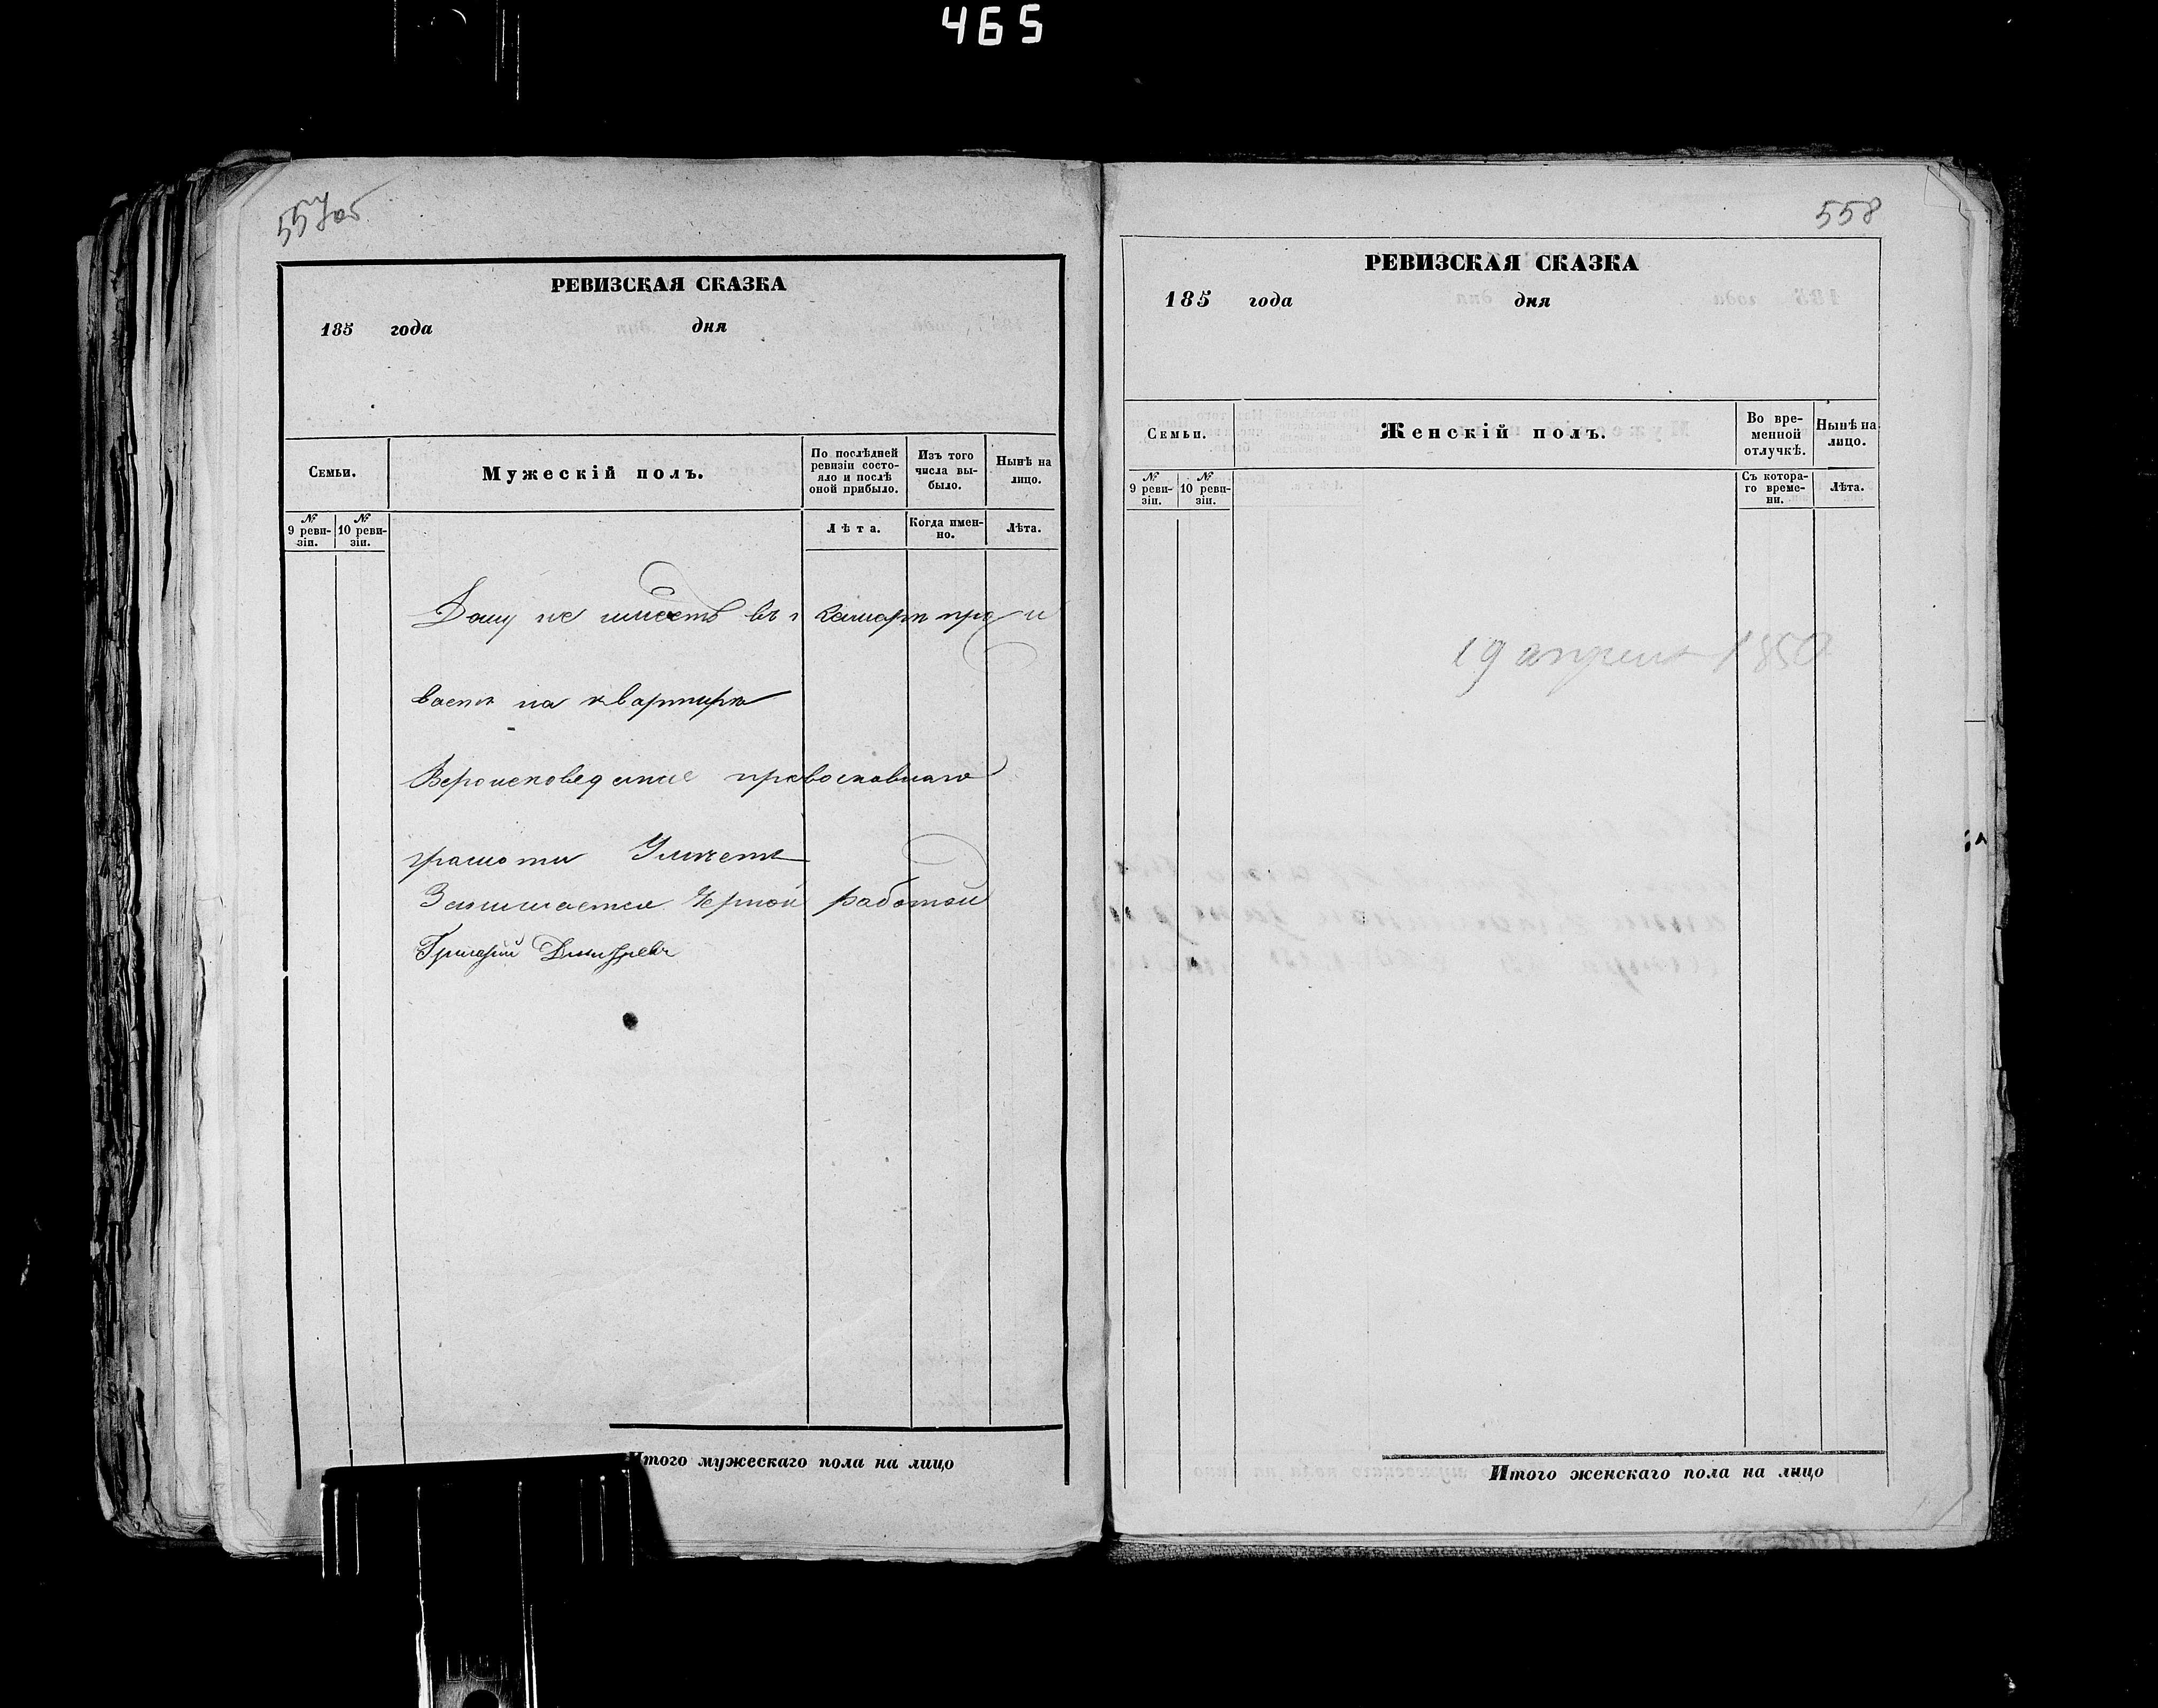 465
557об
РЕВИЗСКАЯ СКАЗКА
185 года дня
Семьи.
Мужескій полъ.
По послѣдней ревизіи состояло и послѣ оной прибыло.
Изъ того числа выбыло.
Нынѣ на лицо.
№ 9 ревизіи.
№ 10 ревизіи.
Лѣта.
Когда именно.
Лѣта.
Дому не имеетъ въ г Самаре прожи
ваетъ на квартире
Вероисповедание православнаго
грамоти Умѣетъ
Занимается Черной работой
Григорий Дмитрев
Итого мужескаго пола на лицо
558
РЕВИЗСКАЯ СКАЗКА
185 года дня
Семьи.
Женскій полъ.
Во временной отлучкѣ.
Нынѣ на лицо.
№ 9 ревизіи.
№ 10 ревизіи.
Съ котораго времени.
Лѣта.
19 апреля 1850
Итого женскаго пола на лицо